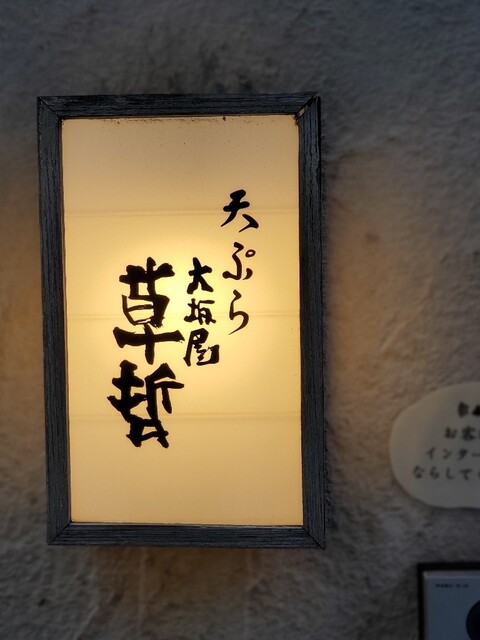 天ぷら
大坂屋
草哲
お客
インター
ならして